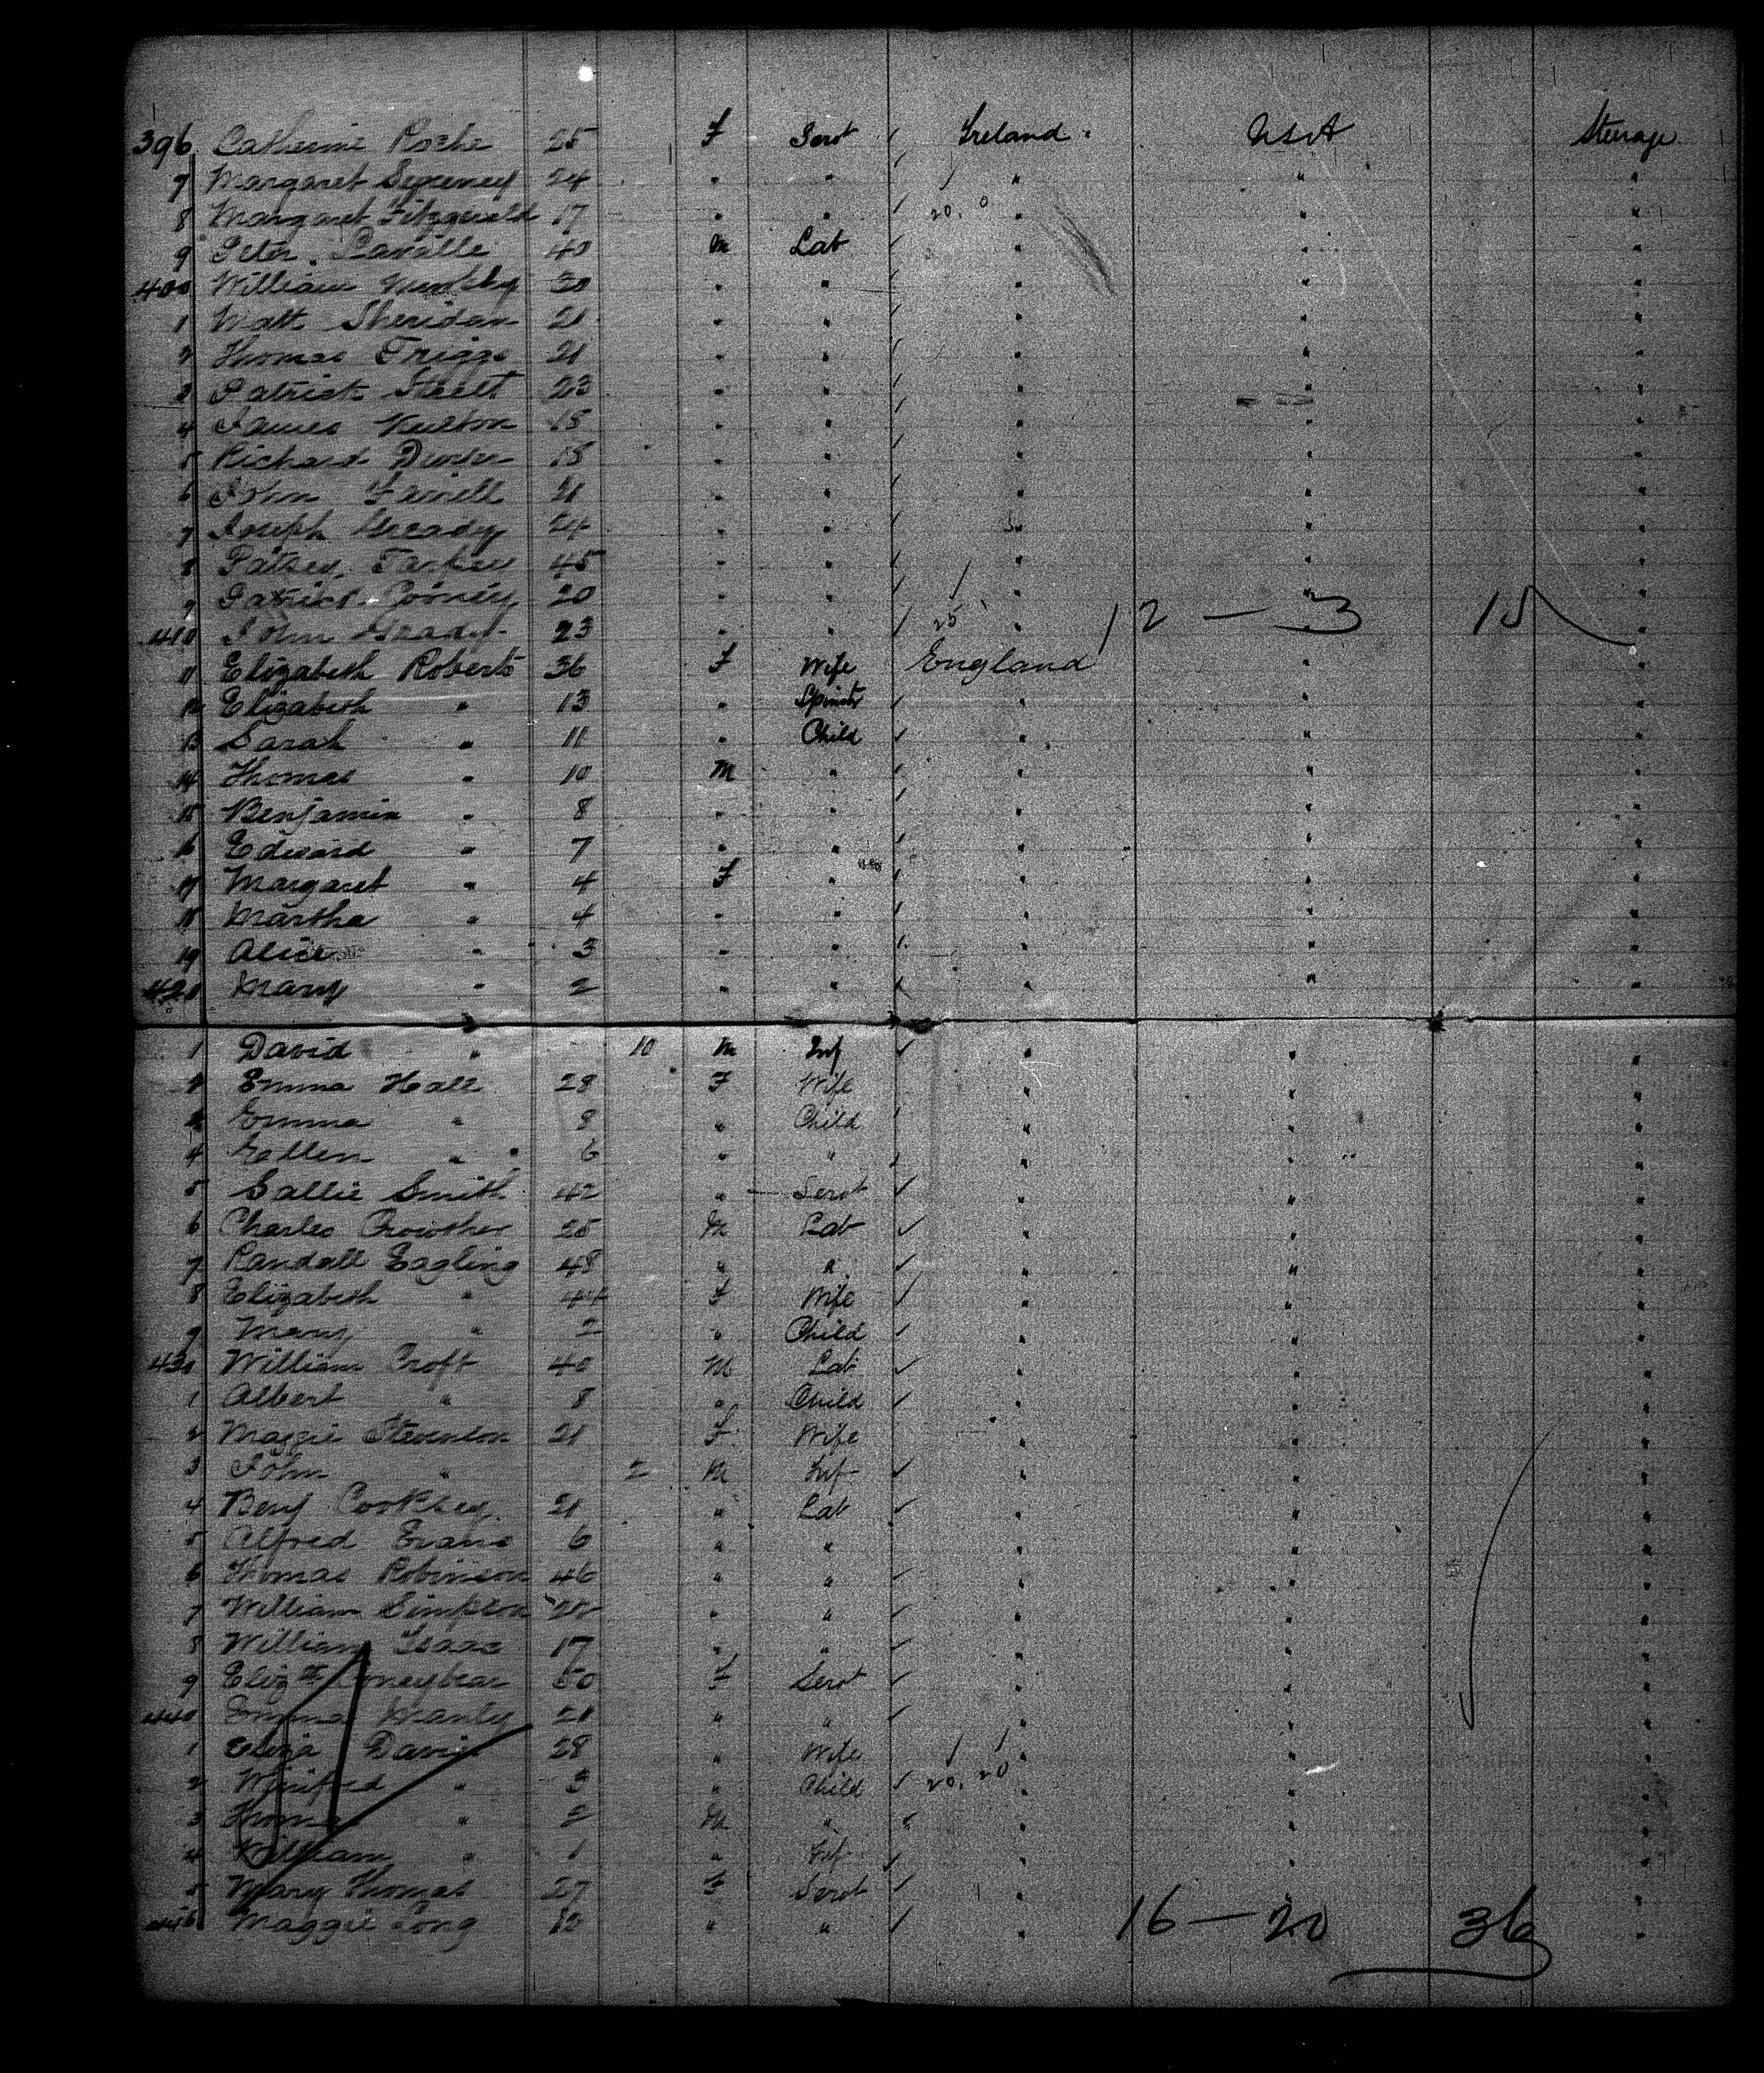 396 Catherine Roche 25 F Servt Ireland USA Steerage
7 Margaret Sweeney 24 " " " " "
8 Margaret Fitzgerald 17 " " 20. 0 " " "
9 Peter Lavalle 40 M Lab " " "
400 William Murphy 20 " " " " "
1 Matt Sheridan 21 " " " " "
2 Thomas Triggs 21 " " " " "
3 Patrick 23 " " " " "
4 James 18 " " " " "
5 Richard 18 " " " " "
6 John 21 " " " " "
7 Joseph 24 " " " " "
8 Patsey 45 " " " " "
9 Patrick Cooney 20 " " " " "
410 John Grady 23 " " 25 " 12 — 3 15
11 Elizabeth Roberts 36 F Wife England " "
12 Elizabeth " 13 " Spinstr " " "
13 Sarah " 11 " Child " " "
14 Thomas " 10 M " " " "
15 Benjamin " 8 " " " " "
16 Edward " 7 " " " " "
17 Margaret " 4 F " " " "
18 Martha " 4 " " " " "
19 Alice " 3 " " " " "
420 Mary " 2 " " " " "
1 David " 10 M Inf " " "
2 Emma Hall 28 F Wife " " "
3 Emma " 8 " Child " " "
4 Ellen " 6 " " " " "
5 Sallie Smith 42 " Servt " " "
6 Charles Crowther 25 M Lab " " "
7 Randall Eagling 48 " " " " "
8 Elizabeth " 44 F Wife " " "
9 Mary " 2 " Child " " "
430 William Croft 40 M Lab " " "
1 Albert " 8 " Child " " "
2 Maggie Stevenson 21 F Wife " " "
3 John " 2 M Inf " " "
4 Benj Cooksey 21 " Lab " " "
5 Alfred Evans 6 " " " " "
6 Thomas Robinson 46 " " " " "
7 William Simpson 20 " " " " "
8 William Isaac 17 " " " " "
9 Elizth Honeybear 50 F Servt " " "
440 Emma 21 " " " " "
1 Eliza Davis 28 " Wife " " "
2 Winifred " 3 " Child 20. 20 " " "
3 Thomas " 2 M " " " "
4 William " 1 " Inf " " "
5 Mary Thomas 27 F Servt " " "
446 Maggie Long 18 " " " 16 — 20 36 "